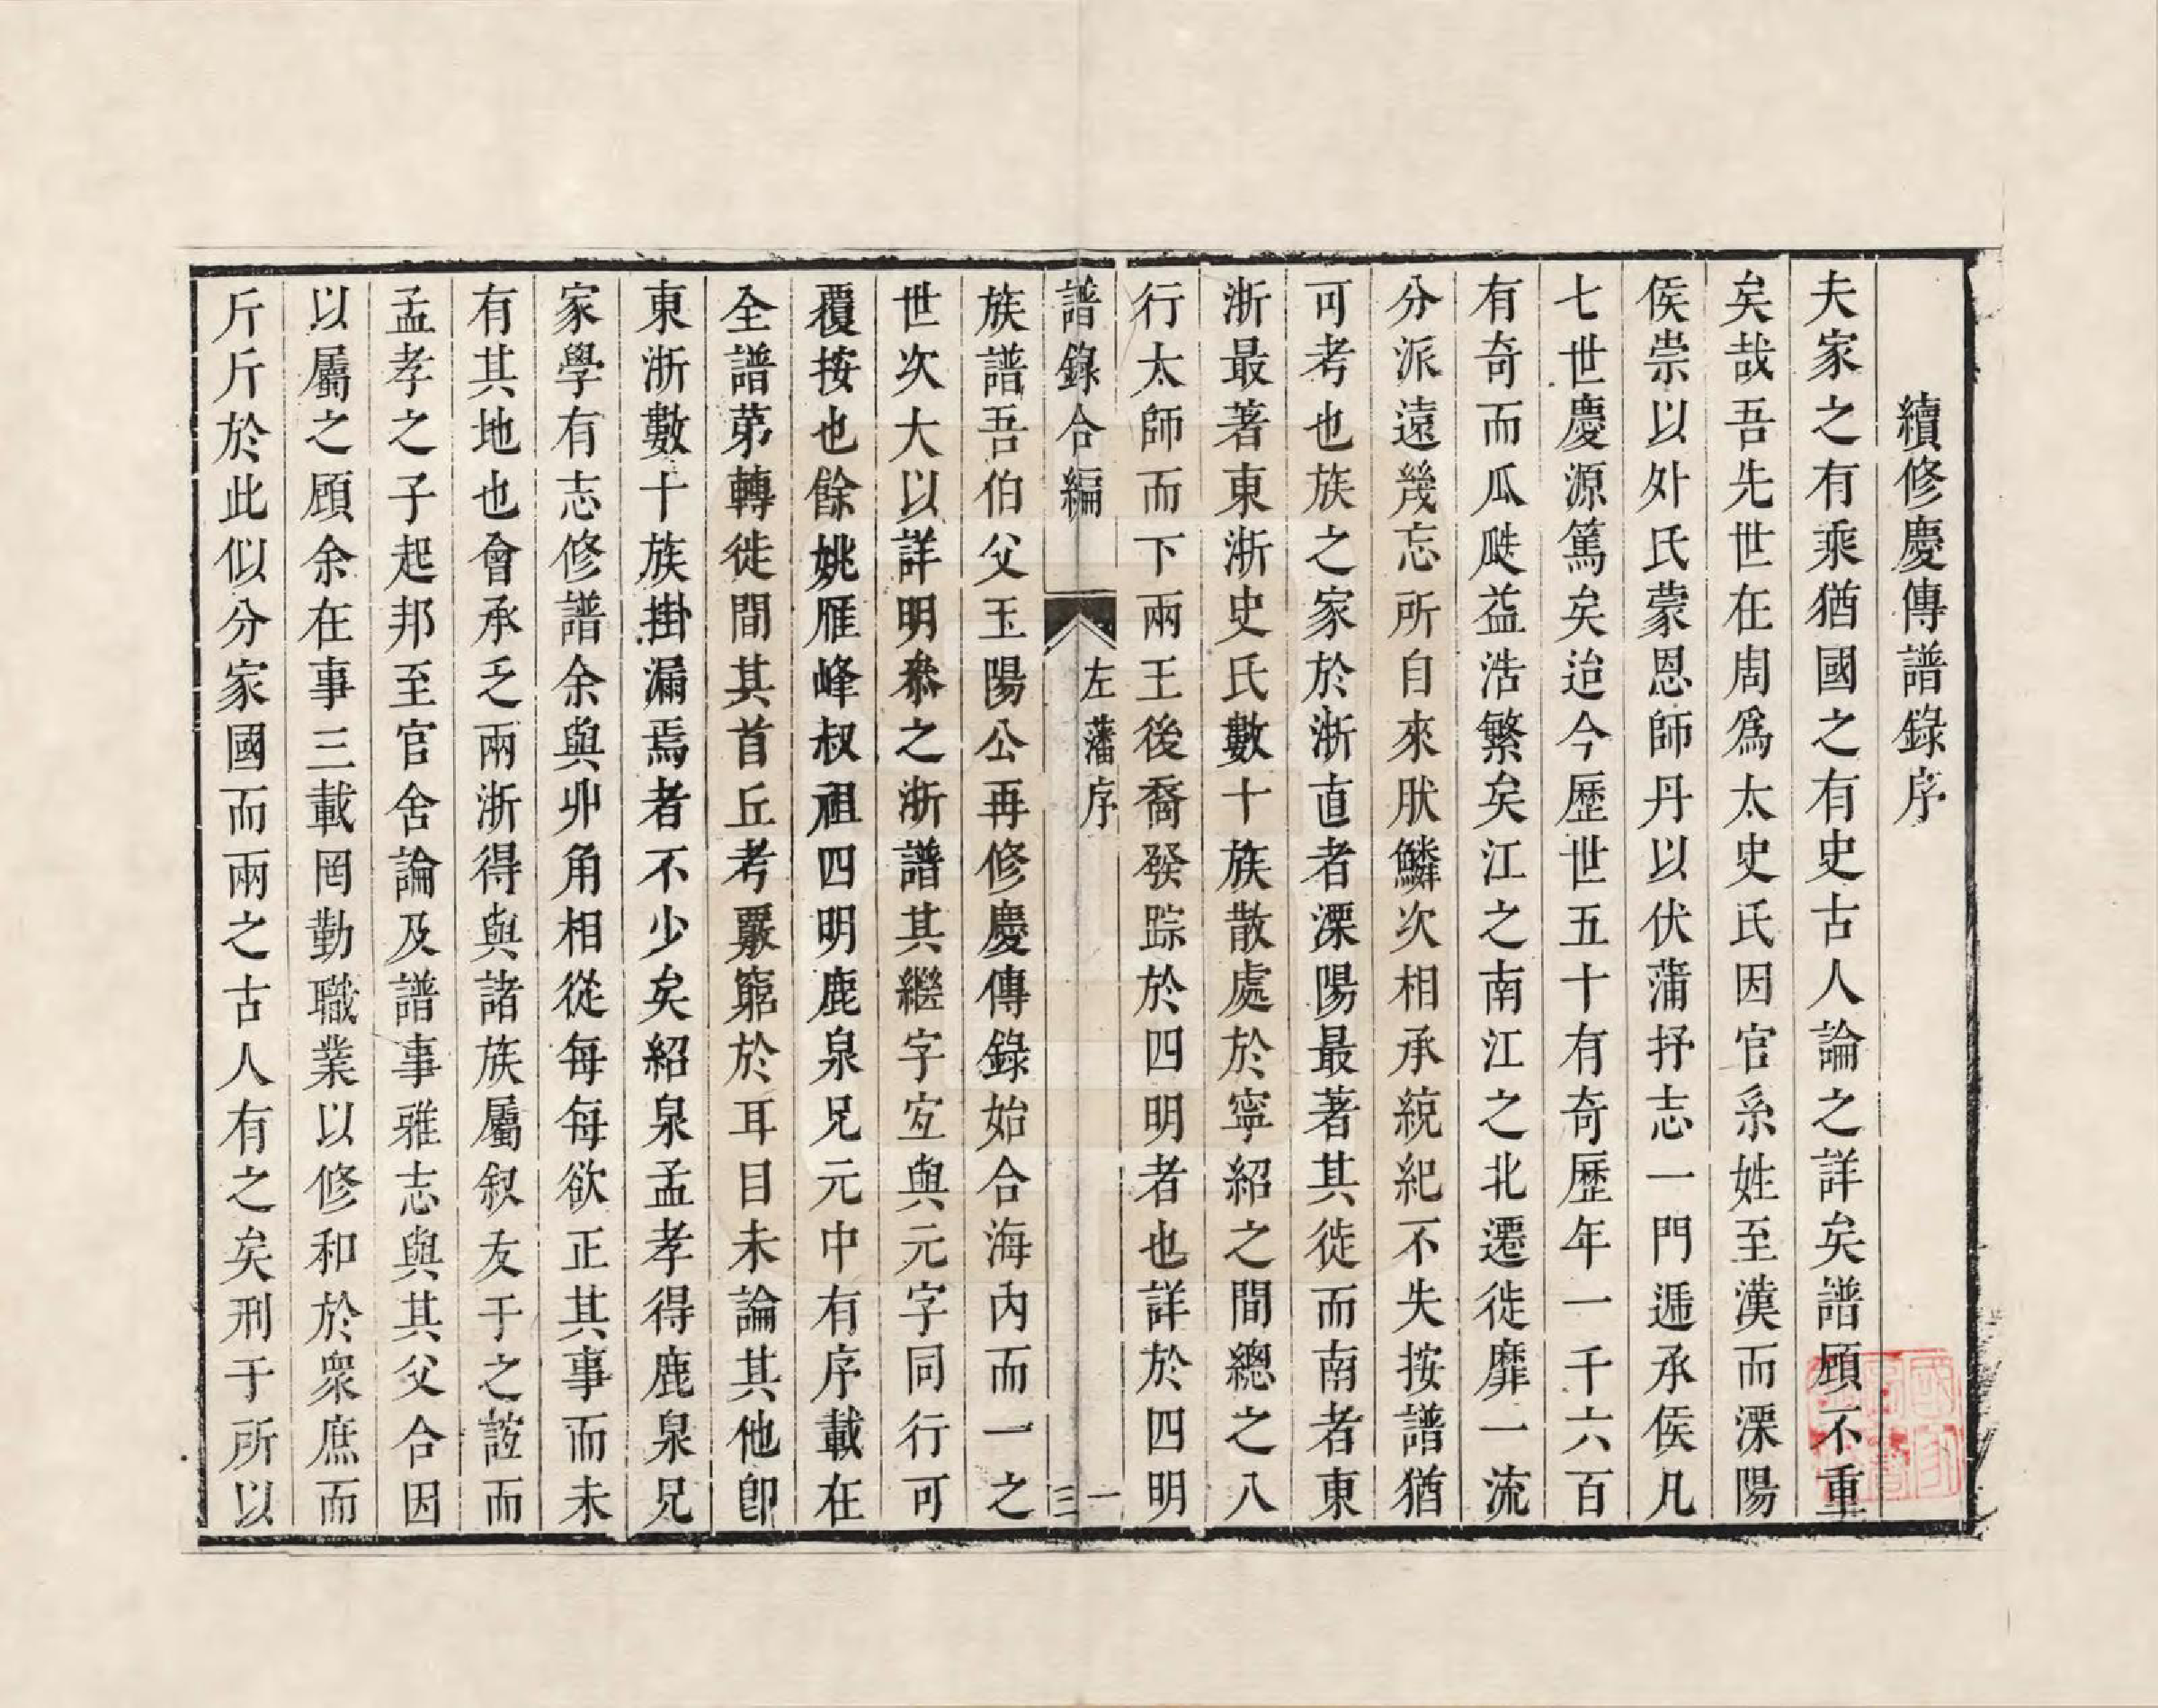 續修慶傳譜錄序
夫家之有乘猶國之有史古人論之詳矣譜顧不重
矣哉吾先世在周爲太史氏因官系姓至漢而溧陽
侯崇以外氏蒙恩師丹以伏蒲抒志一門遞承侯凡
七世慶源篤矣迨今歷世五十有奇歷年一千六百
有奇而瓜瓞益浩繁矣江之南江之北遷徙靡一流
分派遠幾忘所自來肰鱗次相承統紀不失按譜猶
可考也族之家於浙直者溧陽最著其徙而南者東
浙最著東浙史氏數十族散處於寧紹之間總之八
行太師而下兩王後裔發踪於四明者也詳於四明
譜錄合編
左藩序
一
三
族譜吾伯父玉陽公再修慶傳錄始合海內而一之
世次大以詳明叅之浙譜其繼字宐與元字同行可
覆按也餘姚雁峰叔祖四明鹿泉兄元中有序載在
全譜苐轉徙間其首丘考覈窮於耳目未論其他卽
東浙數十族掛漏焉者不少矣紹泉孟孝得鹿泉兄
家學有志修譜余與丱角相從每每欲正其事而未
有其地也會承乏兩浙得與諸族屬叙友于之誼而
孟孝之子起邦至官舍論及譜事雅志與其父合因
以屬之顧余在事三載罔勤職業以修和於衆庶而
斤斤於此似分家國而兩之古人有之矣刑于所以